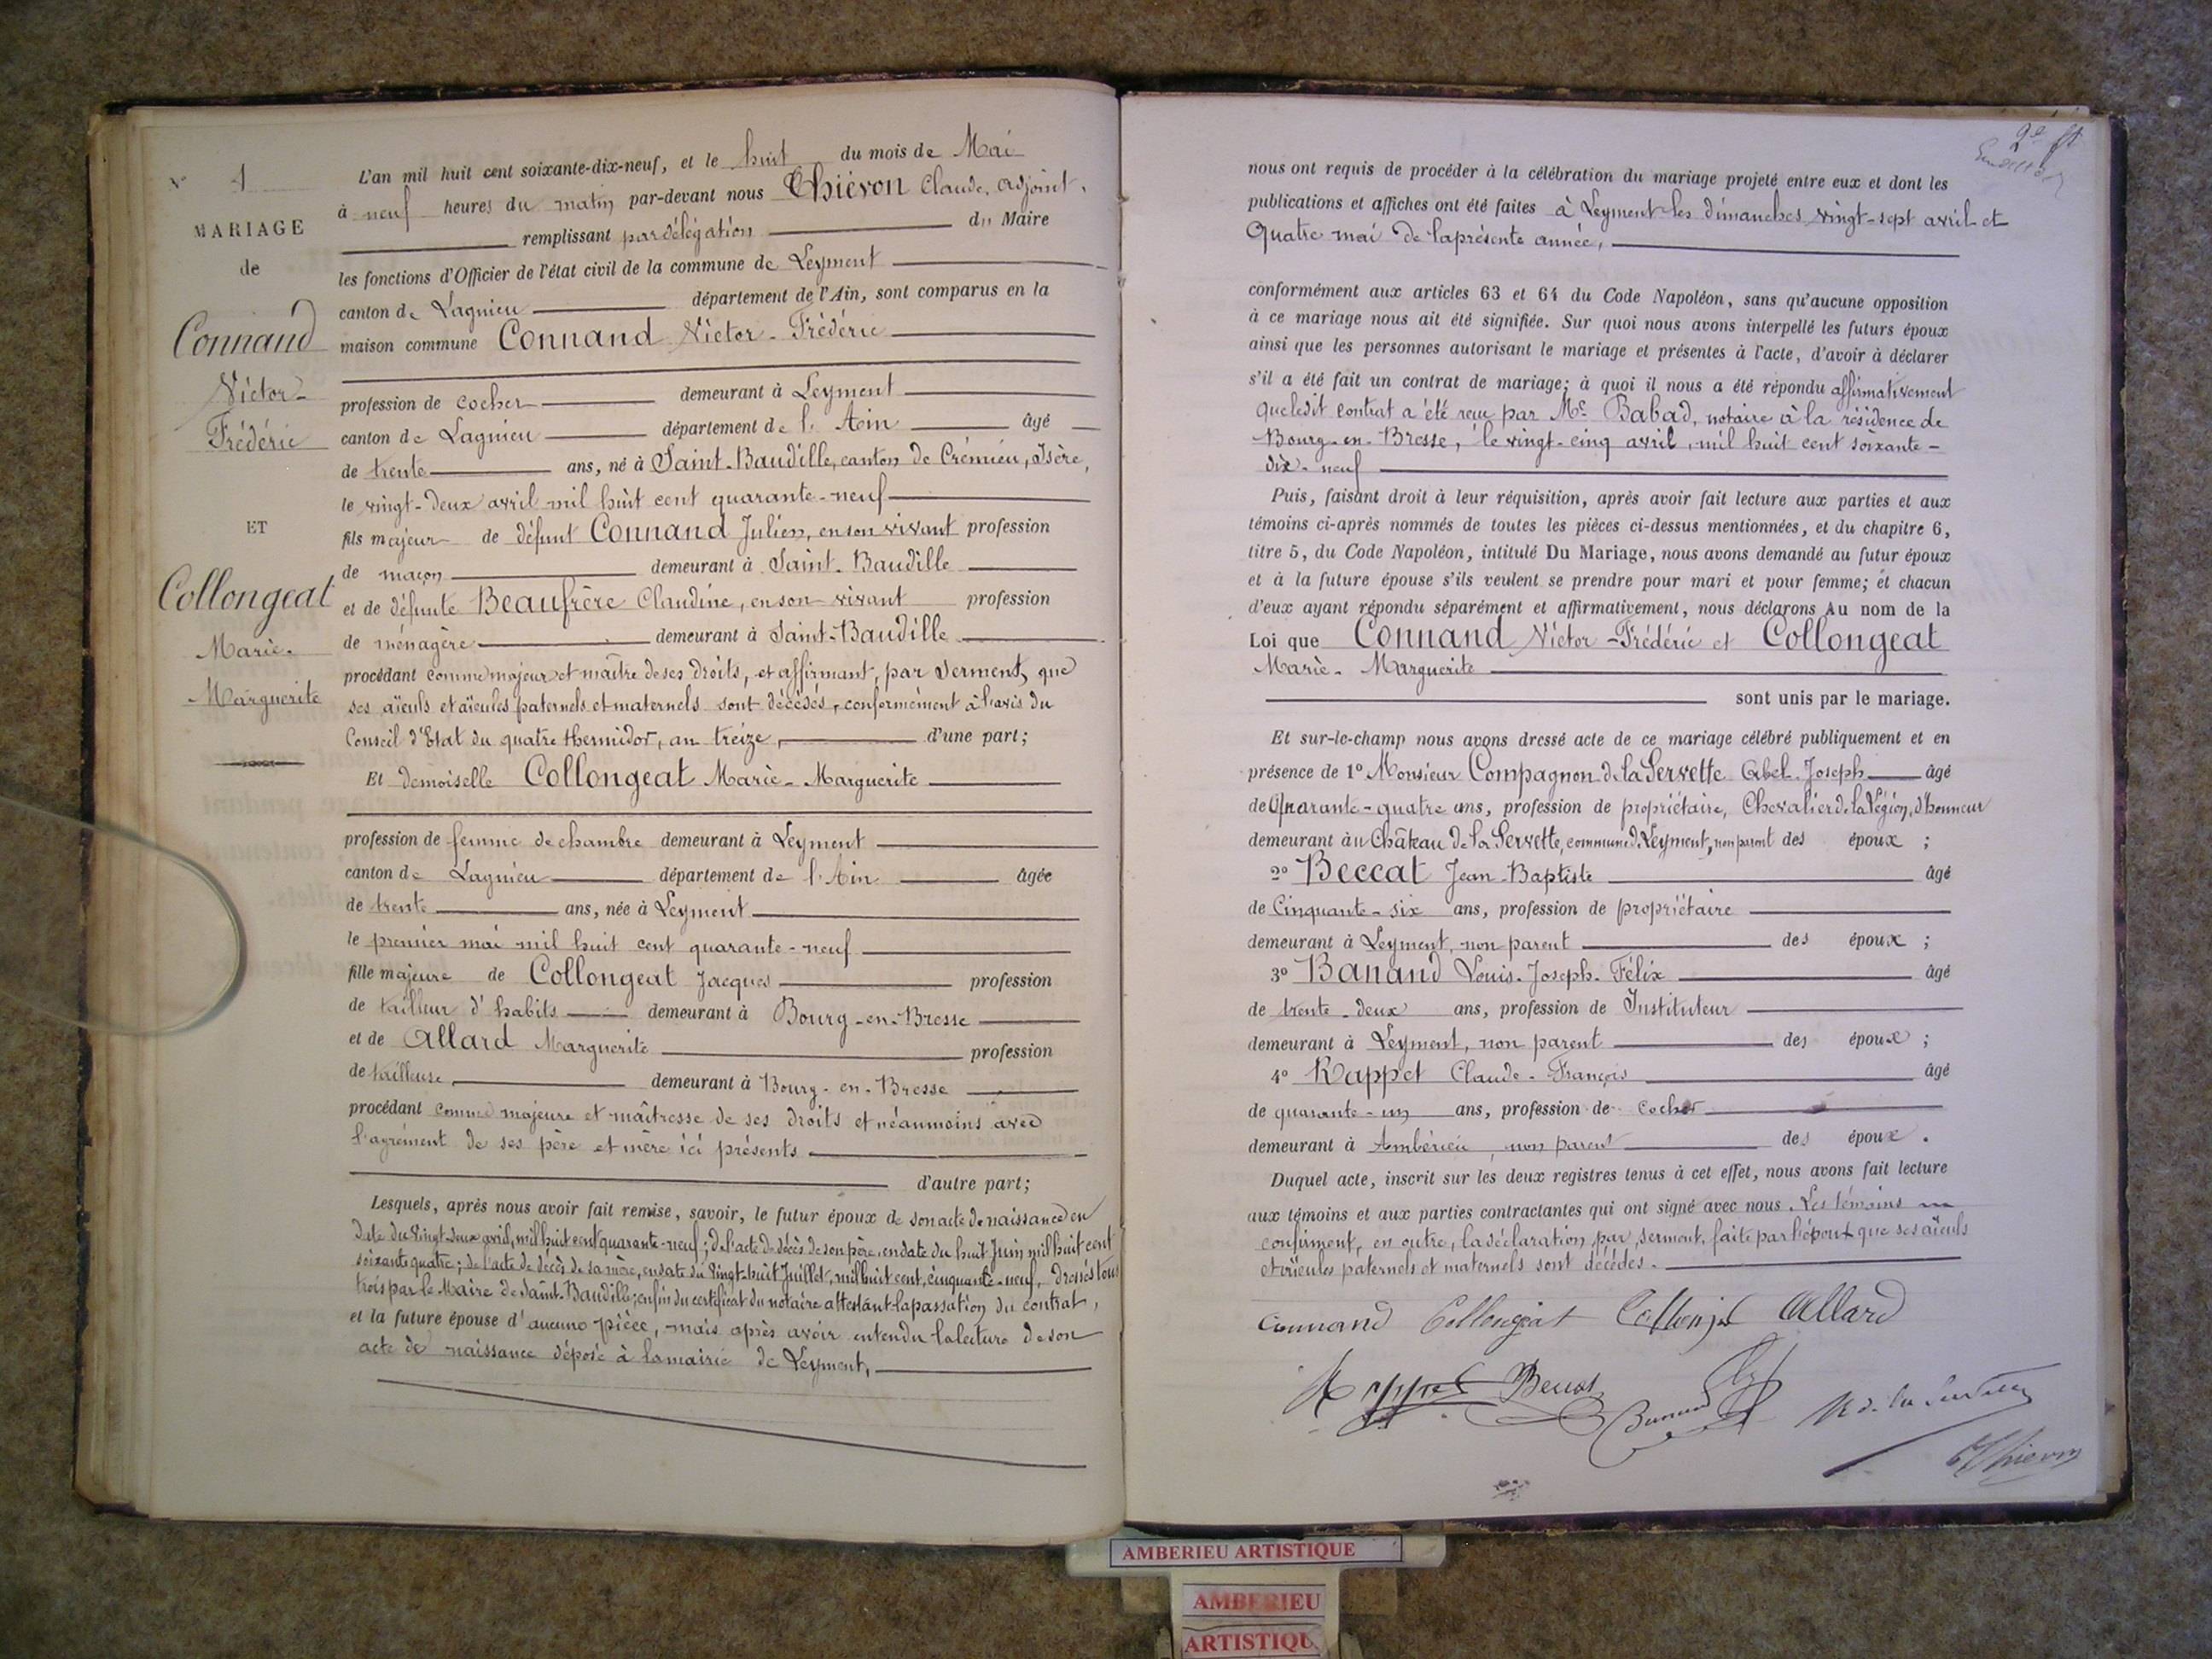 N° 1
MARIAGE
de
Connand
Victor-
Frédéric
ET
Collongeat
Marie-
Marguerite
L'an mil huit cent soixante-dix-neuf, et le huit du mois de Mai
à neuf heures du matin par-devant nous Thiévon Claude, adjoint,
remplissant par délégation du Maire
les fonctions d'Officier de l'état civil de la commune de Leyment
canton de Lagnieu département de l'Ain, sont comparus en la
maison commune Connand Victor-Frédéric
profession de cocher demeurant à Leyment
canton de Lagnieu département de l'Ain âgé
de trente ans, né à Saint-Baudille, canton de Crémieu, Isère,
le vingt-deux avril mil huit cent quarante-neuf
fils majeur de défunt Connand Julien, en son vivant profession
de maçon demeurant à Saint-Baudille
et de défunte Beaufrère Claudine, en son vivant profession
de ménagère demeurant à Saint-Baudille
procédant comme majeur et maître de ses droits, et affirmant, par serment, que
ses aïeuls et aïeules paternels et maternels sont décédés, conformément à l'avis du
Conseil d'Etat du quatre thermidor, an treize, d'une part;
Et demoiselle Collongeat Marie-Marguerite
profession de femme de chambre demeurant à Leyment
canton de Lagnieu département de l'Ain âgée
de trente ans, née à Leyment
le premier mai mil huit cent quarante-neuf
fille majeure de Collongeat Jacques profession
de tailleur d'habits demeurant à Bourg-en-Bresse
et de Allard Marguerite profession
de tailleuse, demeurant à Bourg-en-Bresse
procédant comme majeure et maîtresse de ses droits et néanmoins avec
l'agrément de ses père et mère ici présents
d'autre part;
Lesquels, après nous avoir fait remise, savoir, le futur époux de son acte de naissance en
date du vingt-deux avril, mil huit cent quarante-neuf; de l'acte de décès de son père, en date du huit Juin, mil huit cent
soixante quatre; de l'acte de décès de sa mère, en date du vingt-huit Juillet, mil huit cent cinquante-neuf, dressés tous
trois par le Maire de Saint-Baudille; enfin du certificat du notaire attestant la passation du contrat,
et la future épouse d'aucune pièce, mais après avoir entendu la lecture de son
acte de naissance déposé à la mairie de Leyment,
nous ont requis de procéder à la célébration du mariage projeté entre eux et dont les
publications et affiches ont été faites à Leyment les dimanches vingt-sept avril et
Quatre mai de la présente année,
conformément aux articles 63 et 64 du Code Napoléon, sans qu'aucune opposition
à ce mariage nous ait été signifiée. Sur quoi nous avons interpellé les futurs époux
ainsi que les personnes autorisant le mariage et présentes à l'acte, d'avoir à déclarer
s'il a été fait un contrat de mariage; à quoi il nous a été répondu affirmativement
que ledit contrat a été reçu par Me Babad, notaire à la résidence de
Bourg-en-Bresse, le vingt-cinq avril, mil huit cent soixante-
dix-neuf
Puis, faisant droit à leur réquisition, après avoir fait lecture aux parties et aux
témoins ci-après nommés de toutes les pièces ci-dessus mentionnées, et du chapitre 6,
titre 5, du Code Napoléon, intitulé Du Mariage, nous avons demandé au futur époux
et à la future épouse s'ils veulent se prendre pour mari et pour femme; et chacun
d'eux ayant répondu séparément et affirmativement, nous déclarons Au nom de la
Loi que Connand Victor-Frédéric et Collongeat
Marie-Marguerite
sont unis par le mariage.
Et sur-le-champ nous avons dressé acte de ce mariage célébré publiquement et en
présence de 1° Monsieur Compagnon de la Servette Abel-Joseph âgé
de Quarante-quatre ans, profession de propriétaire, Chevalier de la Légion d'honneur
demeurant au Château de la Servette, commune de Leyment, non parent des époux ;
2° Beccat Jean-Baptiste âgé
de Cinquante-six ans, profession de propriétaire
demeurant à Leyment, non parent des époux ;
3° Banand Louis-Joseph-Félix âgé
de trente-deux ans, profession de Instituteur
demeurant à Leyment, non parent des époux ;
4° Rappet Claude-François âgé
de quarante-un ans, profession de Cocher
demeurant à Ambérieu, non parent des époux.
Duquel acte, inscrit sur les deux registres tenus à cet effet, nous avons fait lecture
aux témoins et aux parties contractantes qui ont signé avec nous. Les témoins
confirment, en outre, la déclaration, par serment, faite par l'époux que ses aïeuls
et aïeules paternels et maternels sont décédés.
Connand Collongeat Collonjat Allard
Rappet Beccat Banand de la Servette
Thiévon
AMBERIEU ARTISTIQUE
AMBERIEU
ARTISTIQU